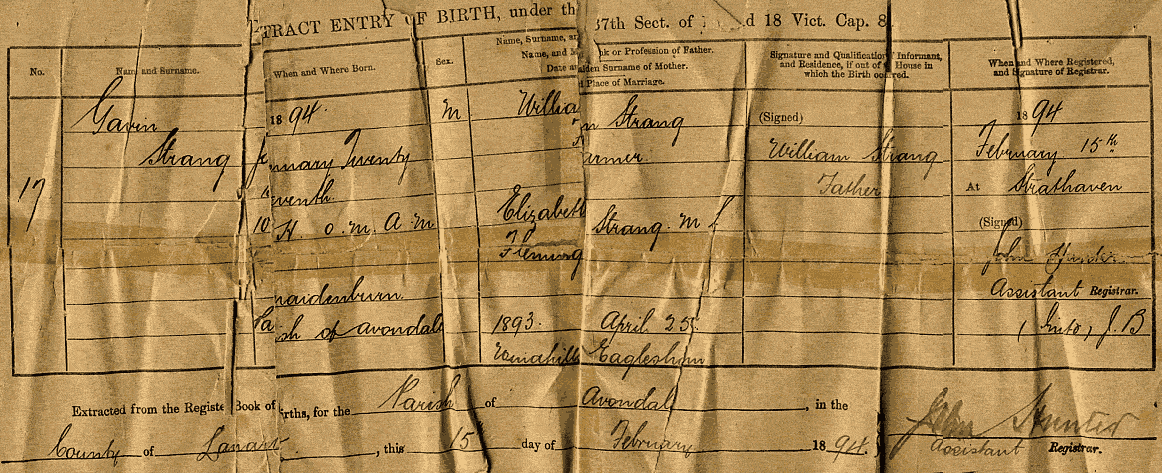 TRACT ENTRY OF BIRTH, under th 37th Sect. of d 18 Vict. Cap. 8
No.
Name and Surname.
When and Where Born.
Sex.
Name, Surname, a nk or Profession of Father.
Name, and M iden Surname of Mother.
Date a d Place of Marriage.
Signature and Qualification Informant,
and Residence, if out of House in
which the Birth occ red.
When and Where Registered,
and Signature of Registrar.
17
Gavin
Strang
1894.
nuary Twenty
eventh.
10 H. o. m. A M
maidenburn
sh of Avondale
M
Willia m Strang
armer
Elizabeth Strang. m s
Fleming
1893. April 25
Eaglesham
(Signed)
William Strang
Father
1894
February 15th
At Strathaven
(Signed)
John Hunter
Assistant Registrar.
J. B
Extracted from the Registe Book of irths, for the Parish of Avondal , in the
County of Lanar , this 15 day of February 1894.
John Hunter
Assistant Registrar.